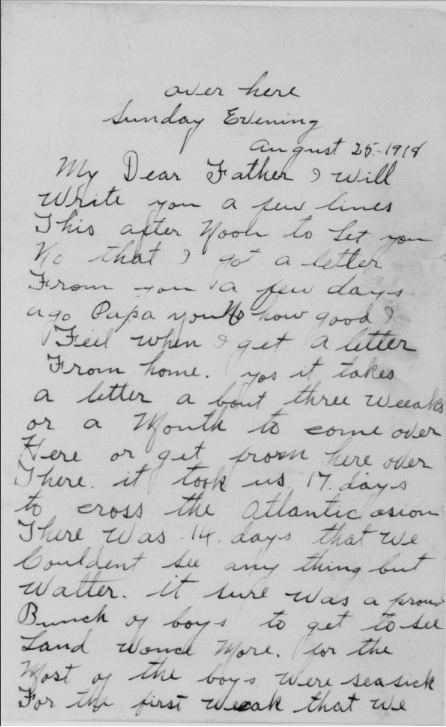 over here
Sunday Evening
August 25-1918
My Dear Father I Will
Write you a few lines
This after Noon to let you
No that I got a letter
From you a few days
ago Papa you No how good I
Feel when I get a letter
From home. yos it takes
a letter a bout three Weeaks
or a Month to come over
Here or get from here over
There. it took us 17. days
to cross the atlantic osion
There Was. 14. days that we
Couldent see any thing but
Watter. it sure was a prou
Bunch of boys to get to see
Land Wonce More. for the
Most of the boys Were seasick
For the first weeak that We